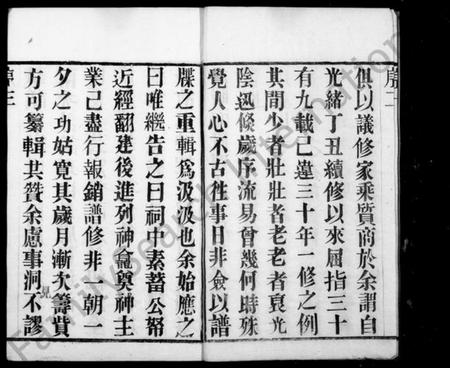 序二
俱以議修家乘質商於余謂自
光緒丁丑續修以來屈指三十
有九載已違三十年一修之例
其間少者壯壯者老老者衰光
陰迅倏歲序流易曾幾何時殊
覺人心不古往事日非僉以譜
牒之重輯爲汲汲也余始應之
曰唯繼告之曰祠中素蓄公帑
近經翻建後進列神龕奠神主
業已盡行報銷譜修非一朝一
夕之功姑寛其歲月漸次籌貲
方可纂輯其贊余慮事洞不謬
見
序三
FamilySearch International